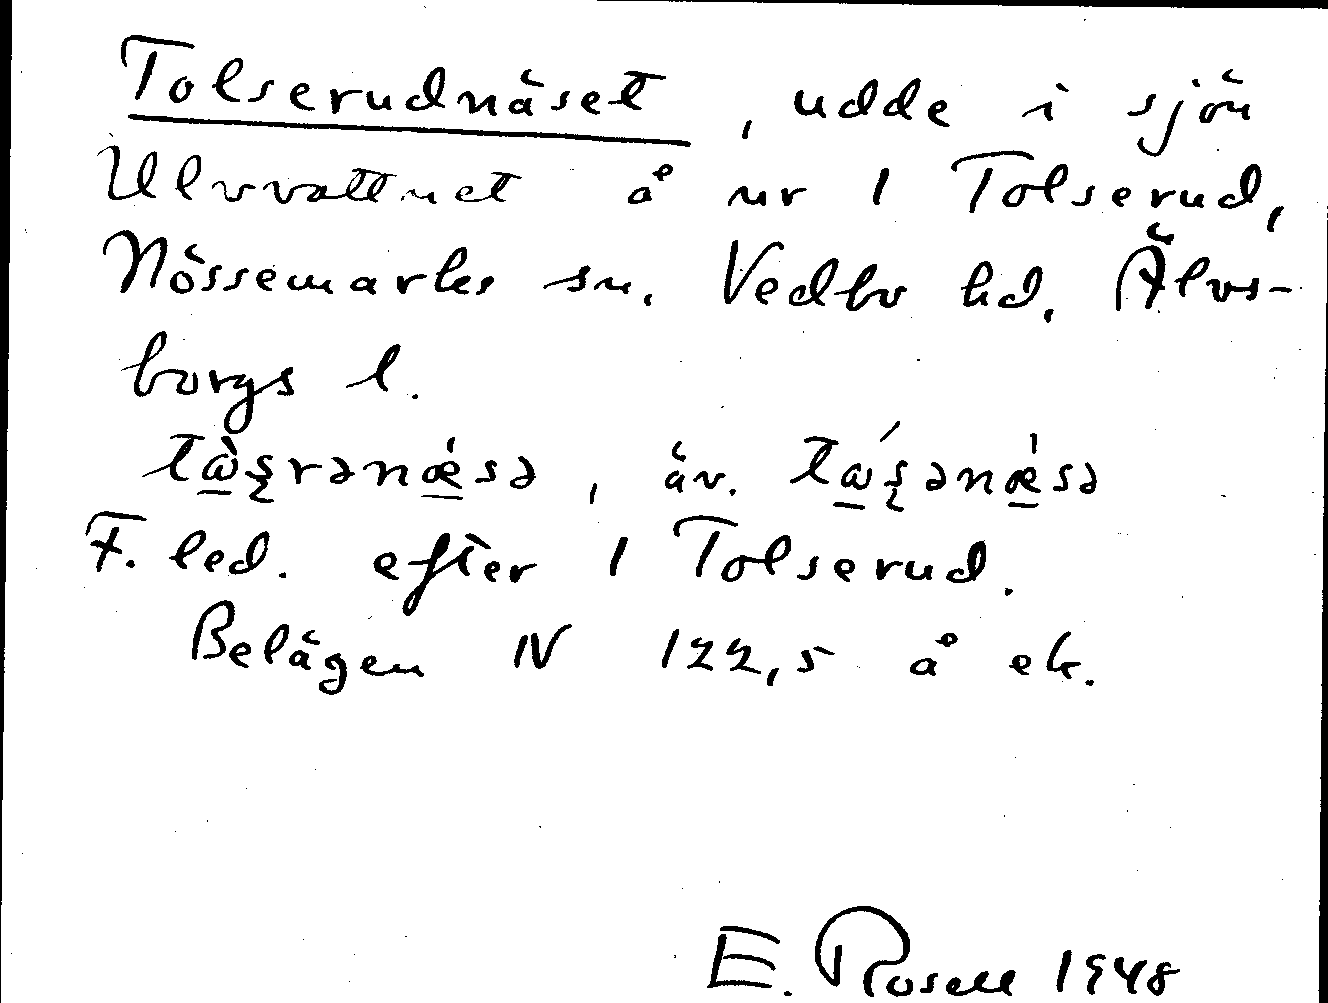 Tolserudnäset, udde i sjön
Ulvvattnet å nr 1 Tolserud,
Nössemarks sn. Vedbo hd. Älvs-
borgs l.
tὼ̱ʂrənǽ̱sə, äv. tώ̱ʂənǽ̱sə
F. led. efter 1 Tolserud.
Belägen N 122,5 å ek.
E. Rosell 1948